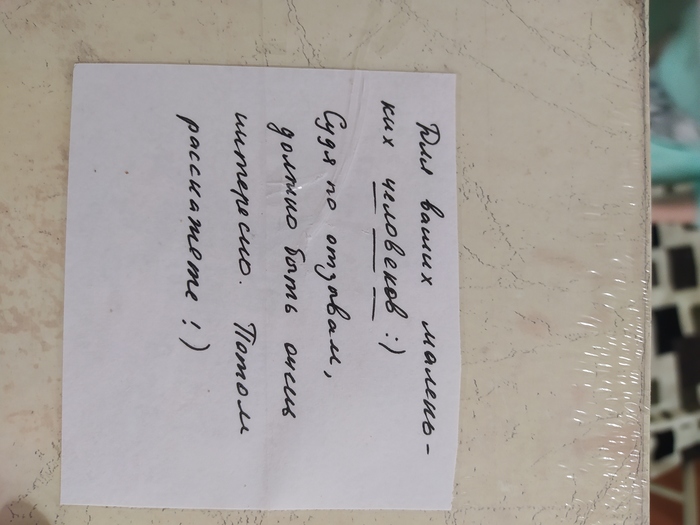 Для ваших малень-
ких человеков :)
Судя по отзывам,
должно быть очень
интересно. Потом
расскажете !)